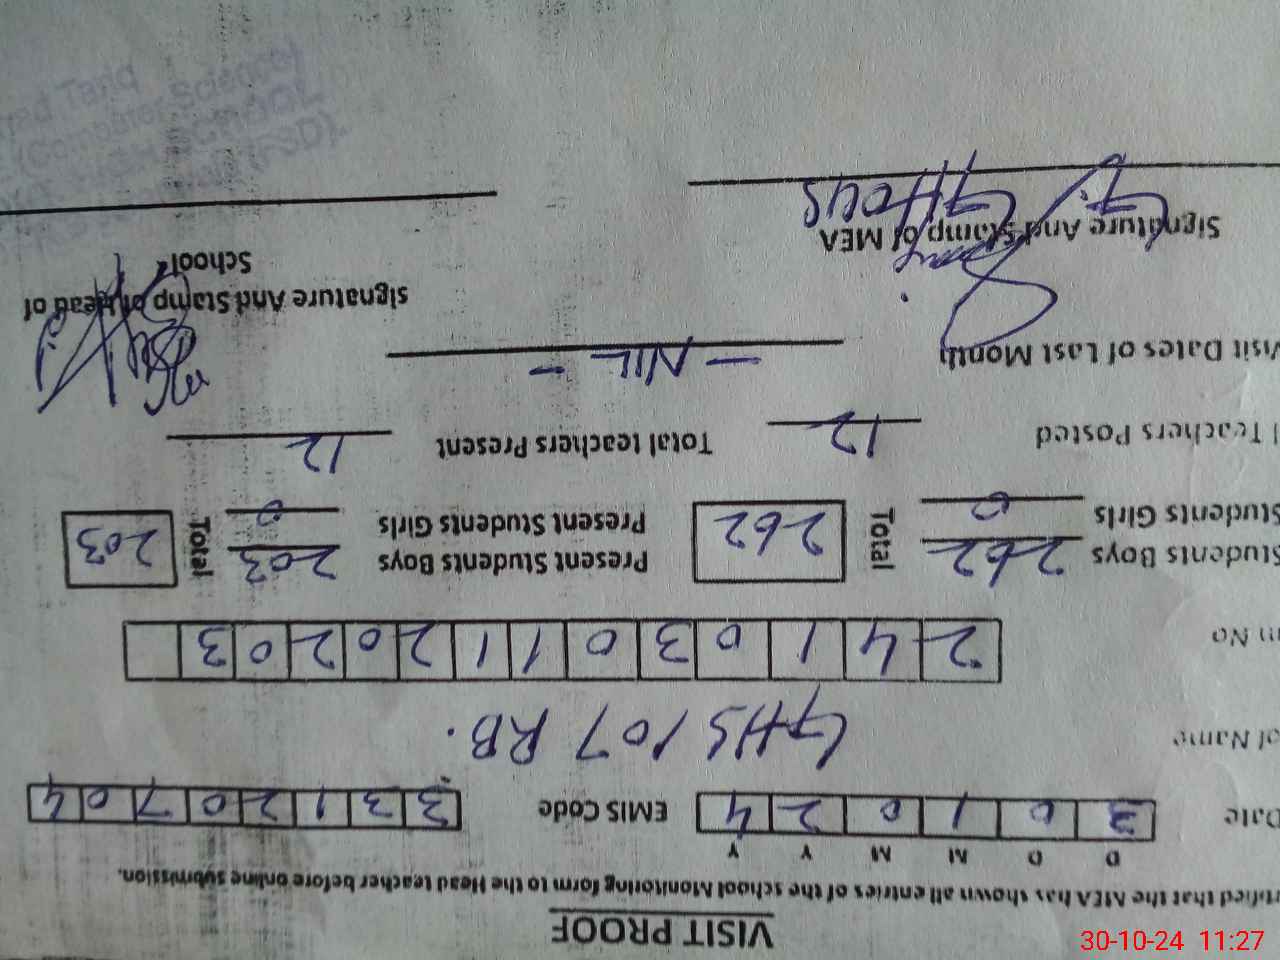 VISIT PROOF
rtified that the MEA has shown all entries of the school Monitoring form to the Head teacher before online submission.
D D M M Y Y
Date 3 0 1 0 2 4 EMIS Code 3 3 1 2 0 7 0 4
of Name GHS 107 RB.
m No 2 4 1 0 3 0 1 1 2 0 2 0 3
Students Boys 262 Total 262 Present Students Boys 203 Total 203
Students Girls 0 Present Students Girls 0
l Teachers Posted 12 Total teachers Present 12
isit Dates of Last Month - NIL -
Signature And Stamp of MEA signature And Stamp of Head of School
G. GHOUS
Tariq
(Computer Science)
HIGH SCHOOL
(FSD).
30-10-24 11:27